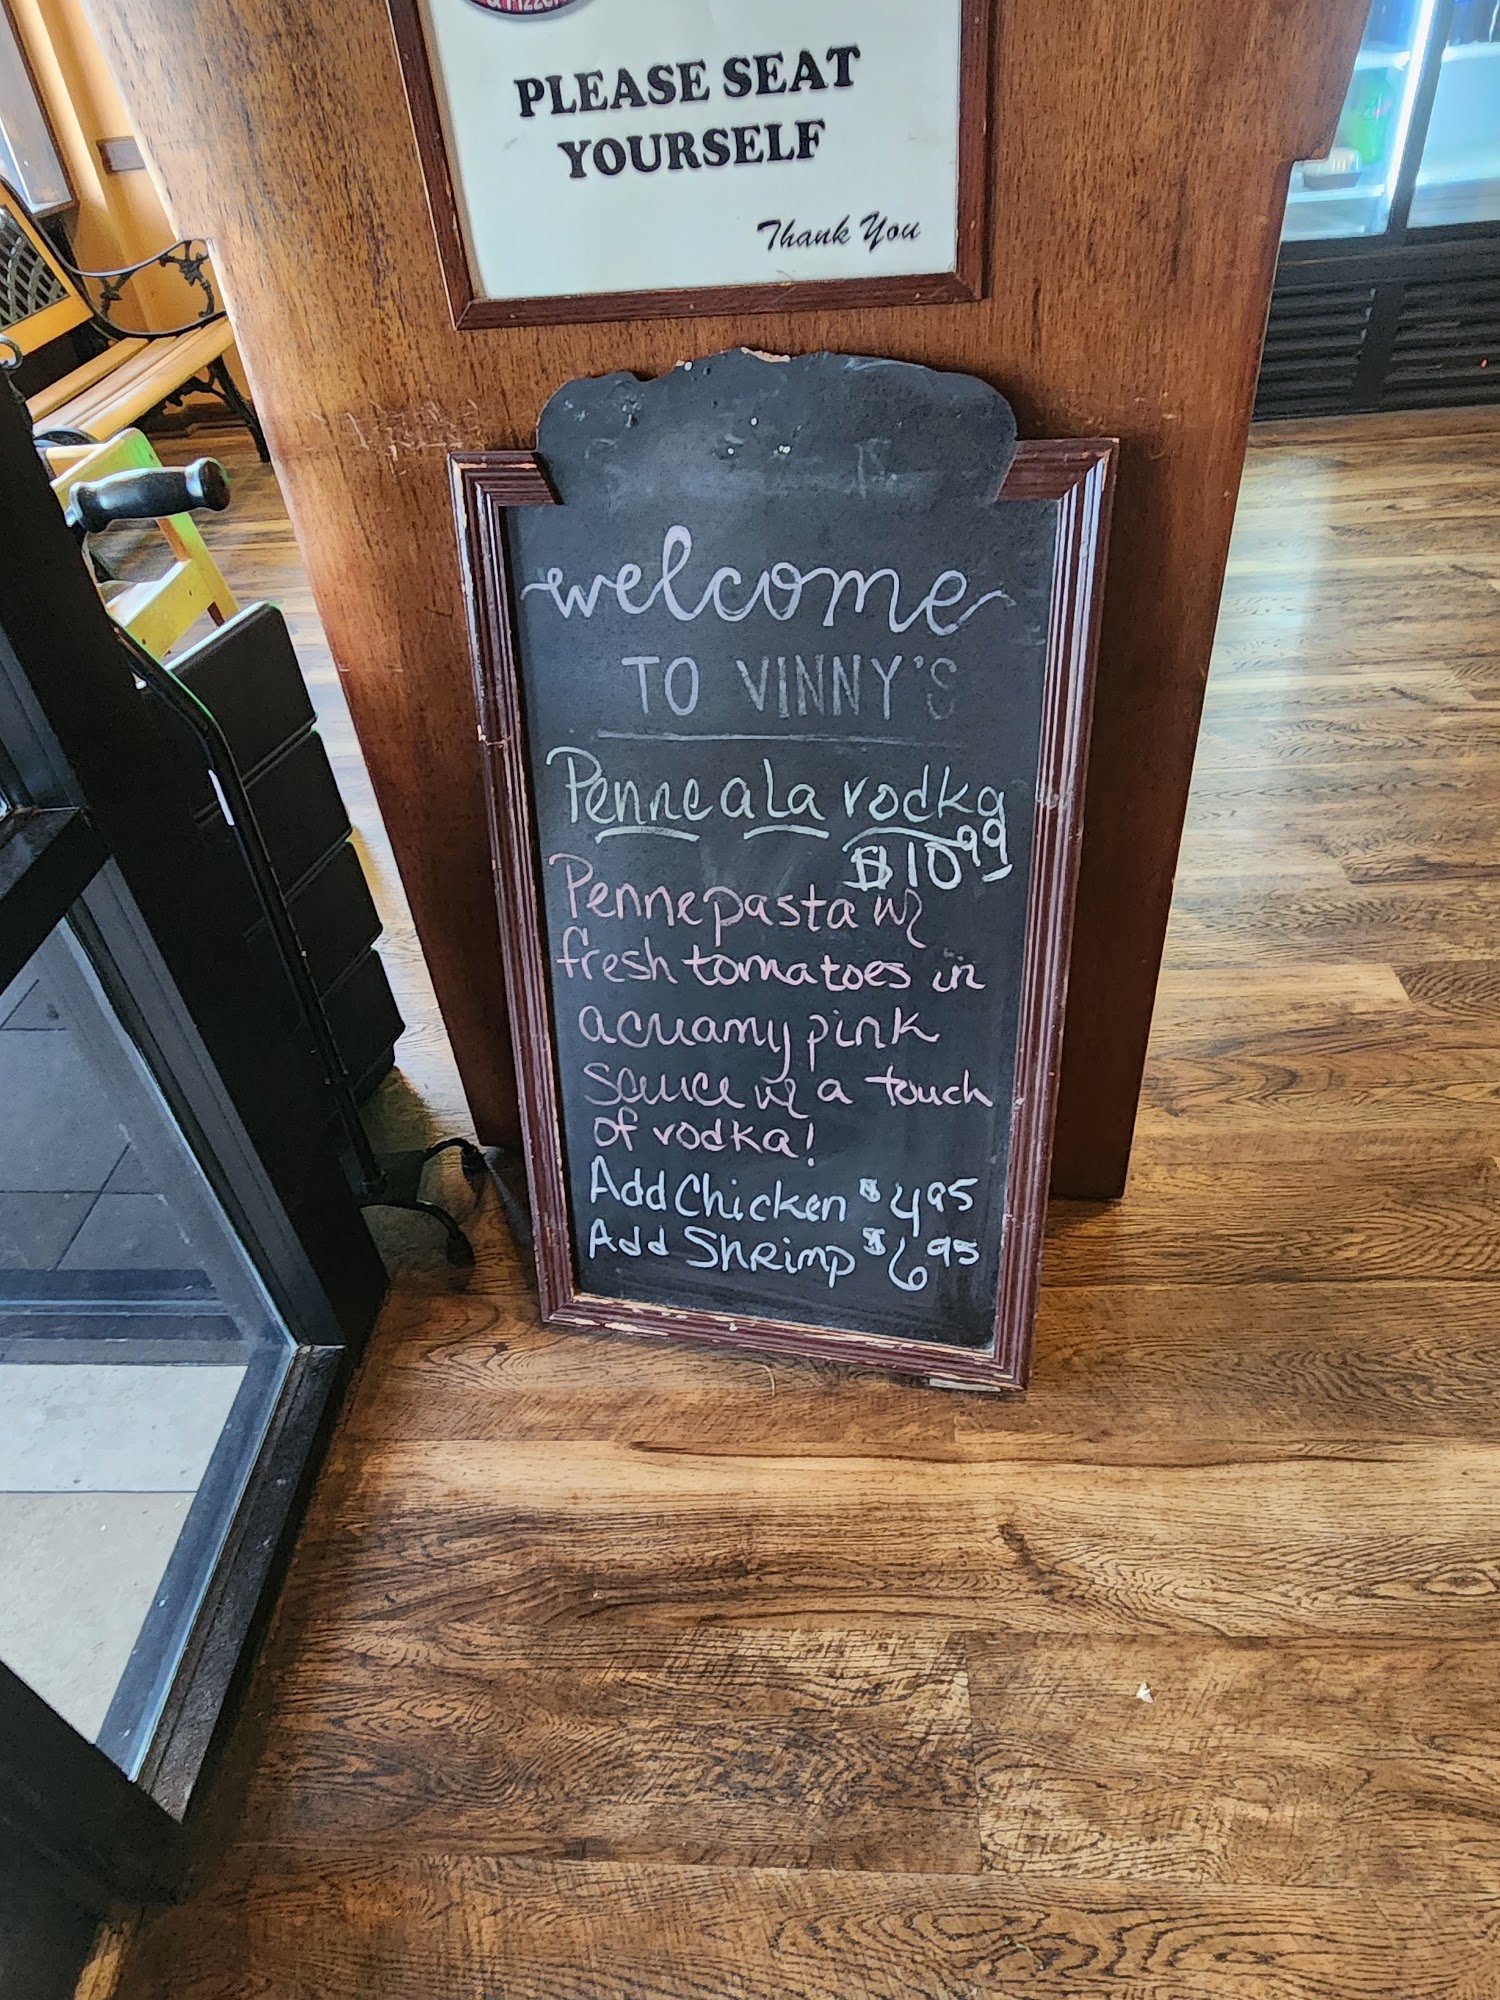 & PIZZERIA
PLEASE SEAT
YOURSELF
Thank You
welcome
TO VINNY'S
Penne a La vodka
$10.99
Penne pasta w/
fresh tomatoes in
a cruamy pink
sauce w/ a touch
of vodka!
Add Chicken $4.95
Add Shrimp $6.95